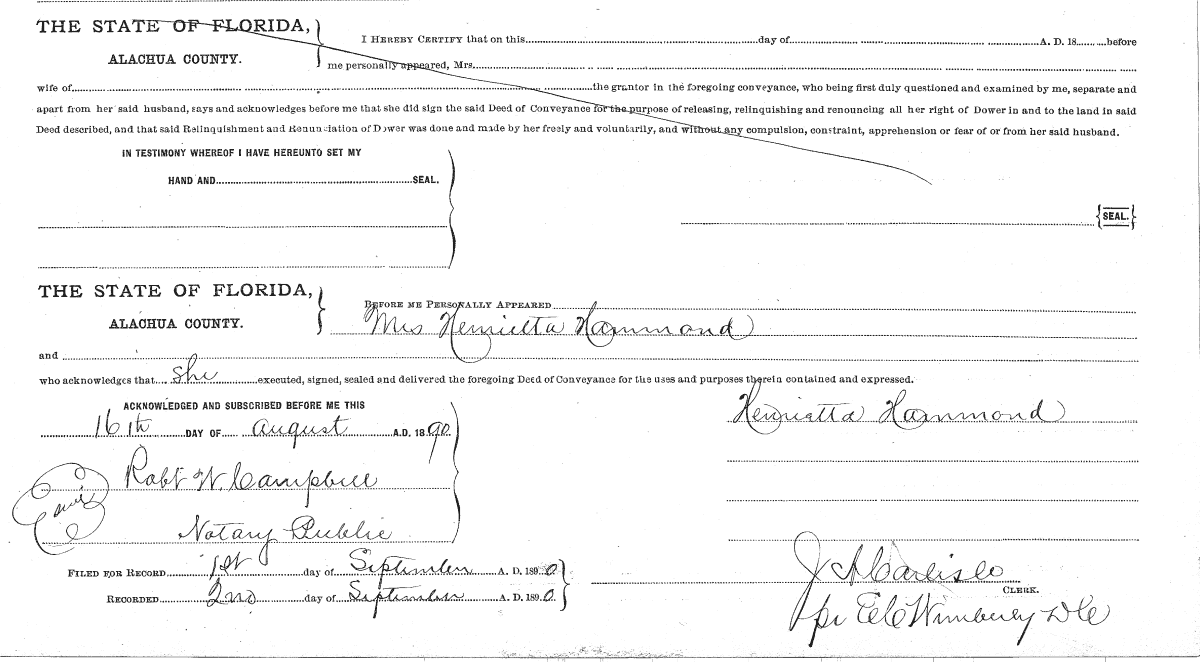 THE STATE OF FLORIDA,
ALACHUA COUNTY.
I HEREBY CERTIFY that on this day of A. D. 18 before
me personally appeared, Mrs.
wife of the grantor in the foregoing conveyance, who being first duly questioned and examined by me, separate and
apart from her said husband, says and acknowledges before me that she did sign the said Deed of Conveyance for the purpose of releasing, relinquishing and renouncing all her right of Dower in and to the land in said
Deed described, and that said Relinquishment and Renunciation of Dower was done and made by her freely and voluntarily, and without any compulsion, constraint, apprehension or fear of or from her said husband.
IN TESTIMONY WHEREOF I HAVE HEREUNTO SET MY
HAND AND SEAL.
SEAL.
THE STATE OF FLORIDA,
ALACHUA COUNTY.
BEFORE ME PERSONALLY APPEARED
Mrs Henrietta Hammond
and
who acknowledges that she executed, signed, sealed and delivered the foregoing Deed of Conveyance for the uses and purposes therein contained and expressed.
ACKNOWLEDGED AND SUBSCRIBED BEFORE ME THIS
16th DAY OF August A.D. 1890
Henrietta Hammond
Robt W. Campbell
Notary Public
FILED FOR RECORD 1st day of September A. D. 1890
RECORDED 2nd day of September A. D. 1890.
J A Carlisle
CLERK.
pr E C Wimberly D C